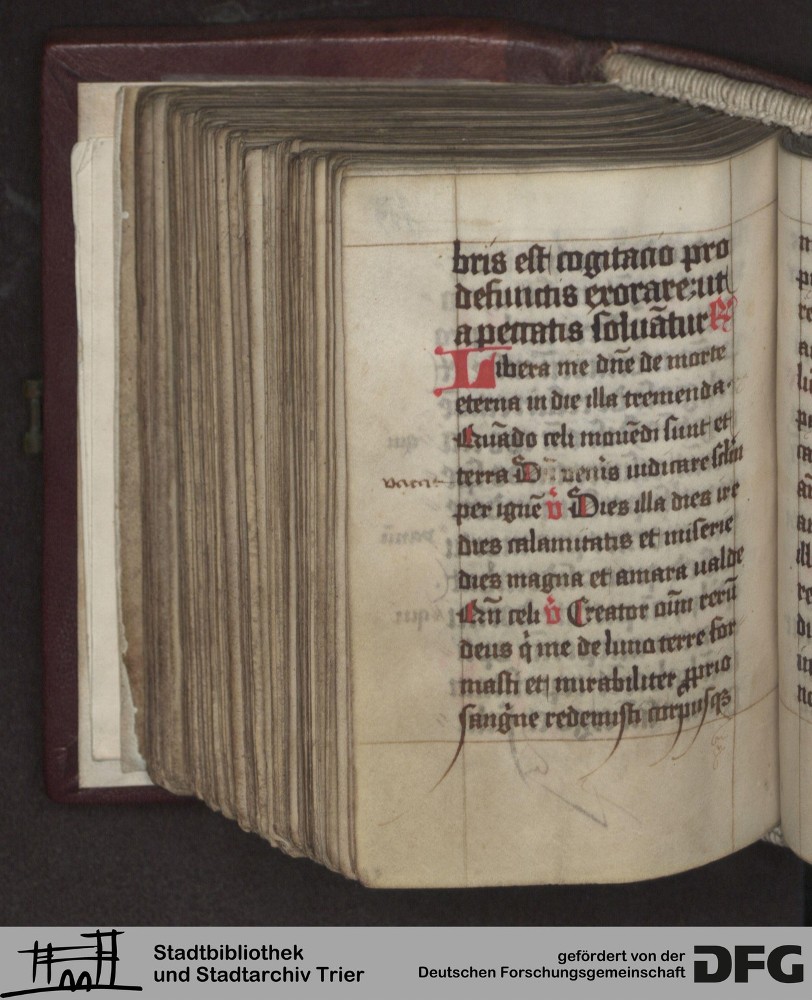 bris est cogitatio pro
defunctis exorare: ut
a peccatis soluātur R
Libera me dn̄e de morte
eterna in die illa tremenda·
Quādo celi mouēdi sunt et
terra D venis iudicare sclm
per ignē v̊ Dies illa dies ire
dies calamitatis et miserie
dies magna et amara ualde
Qn̄ celi v̊ Creator oīm rerū
deus q̇ me de limo terre for
masti et mirabiliter ꝓprio
sangne redemisti corpusqꝫ
Stadtbibliothek
und Stadtarchiv Trier
gefördert von der
Deutschen Forschungsgemeinschaft
DFG